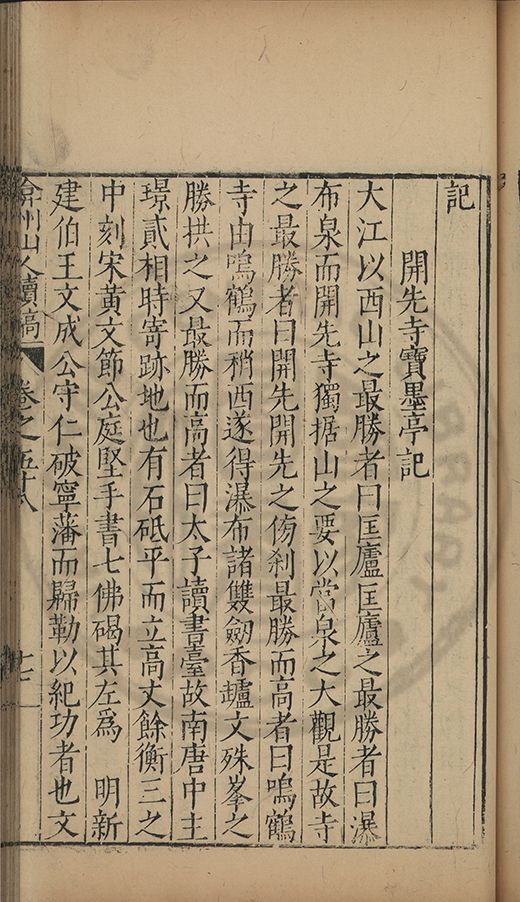 記
開先寺寶墨亭記
大江以西山之最勝者曰匡廬匡廬之最勝者曰瀑
布泉而開先寺獨据山之要以當泉之大觀是故寺
之最勝者曰開先開先之傍刹最勝而高者曰鳴鶴
寺由鳴鶴而稍西遂得瀑布諸雙劒香罏文殊峯之
勝拱之又最勝而高者曰太子讀書臺故南唐中主
璟貳相時寄跡地也有石砥平而立高丈餘衡三之
中刻宋黃文節公庭堅手書七佛碣其左爲　明新
建伯王文成公守仁破寧藩而歸勒以紀功者也文
弇州山人續稿　卷之五十八